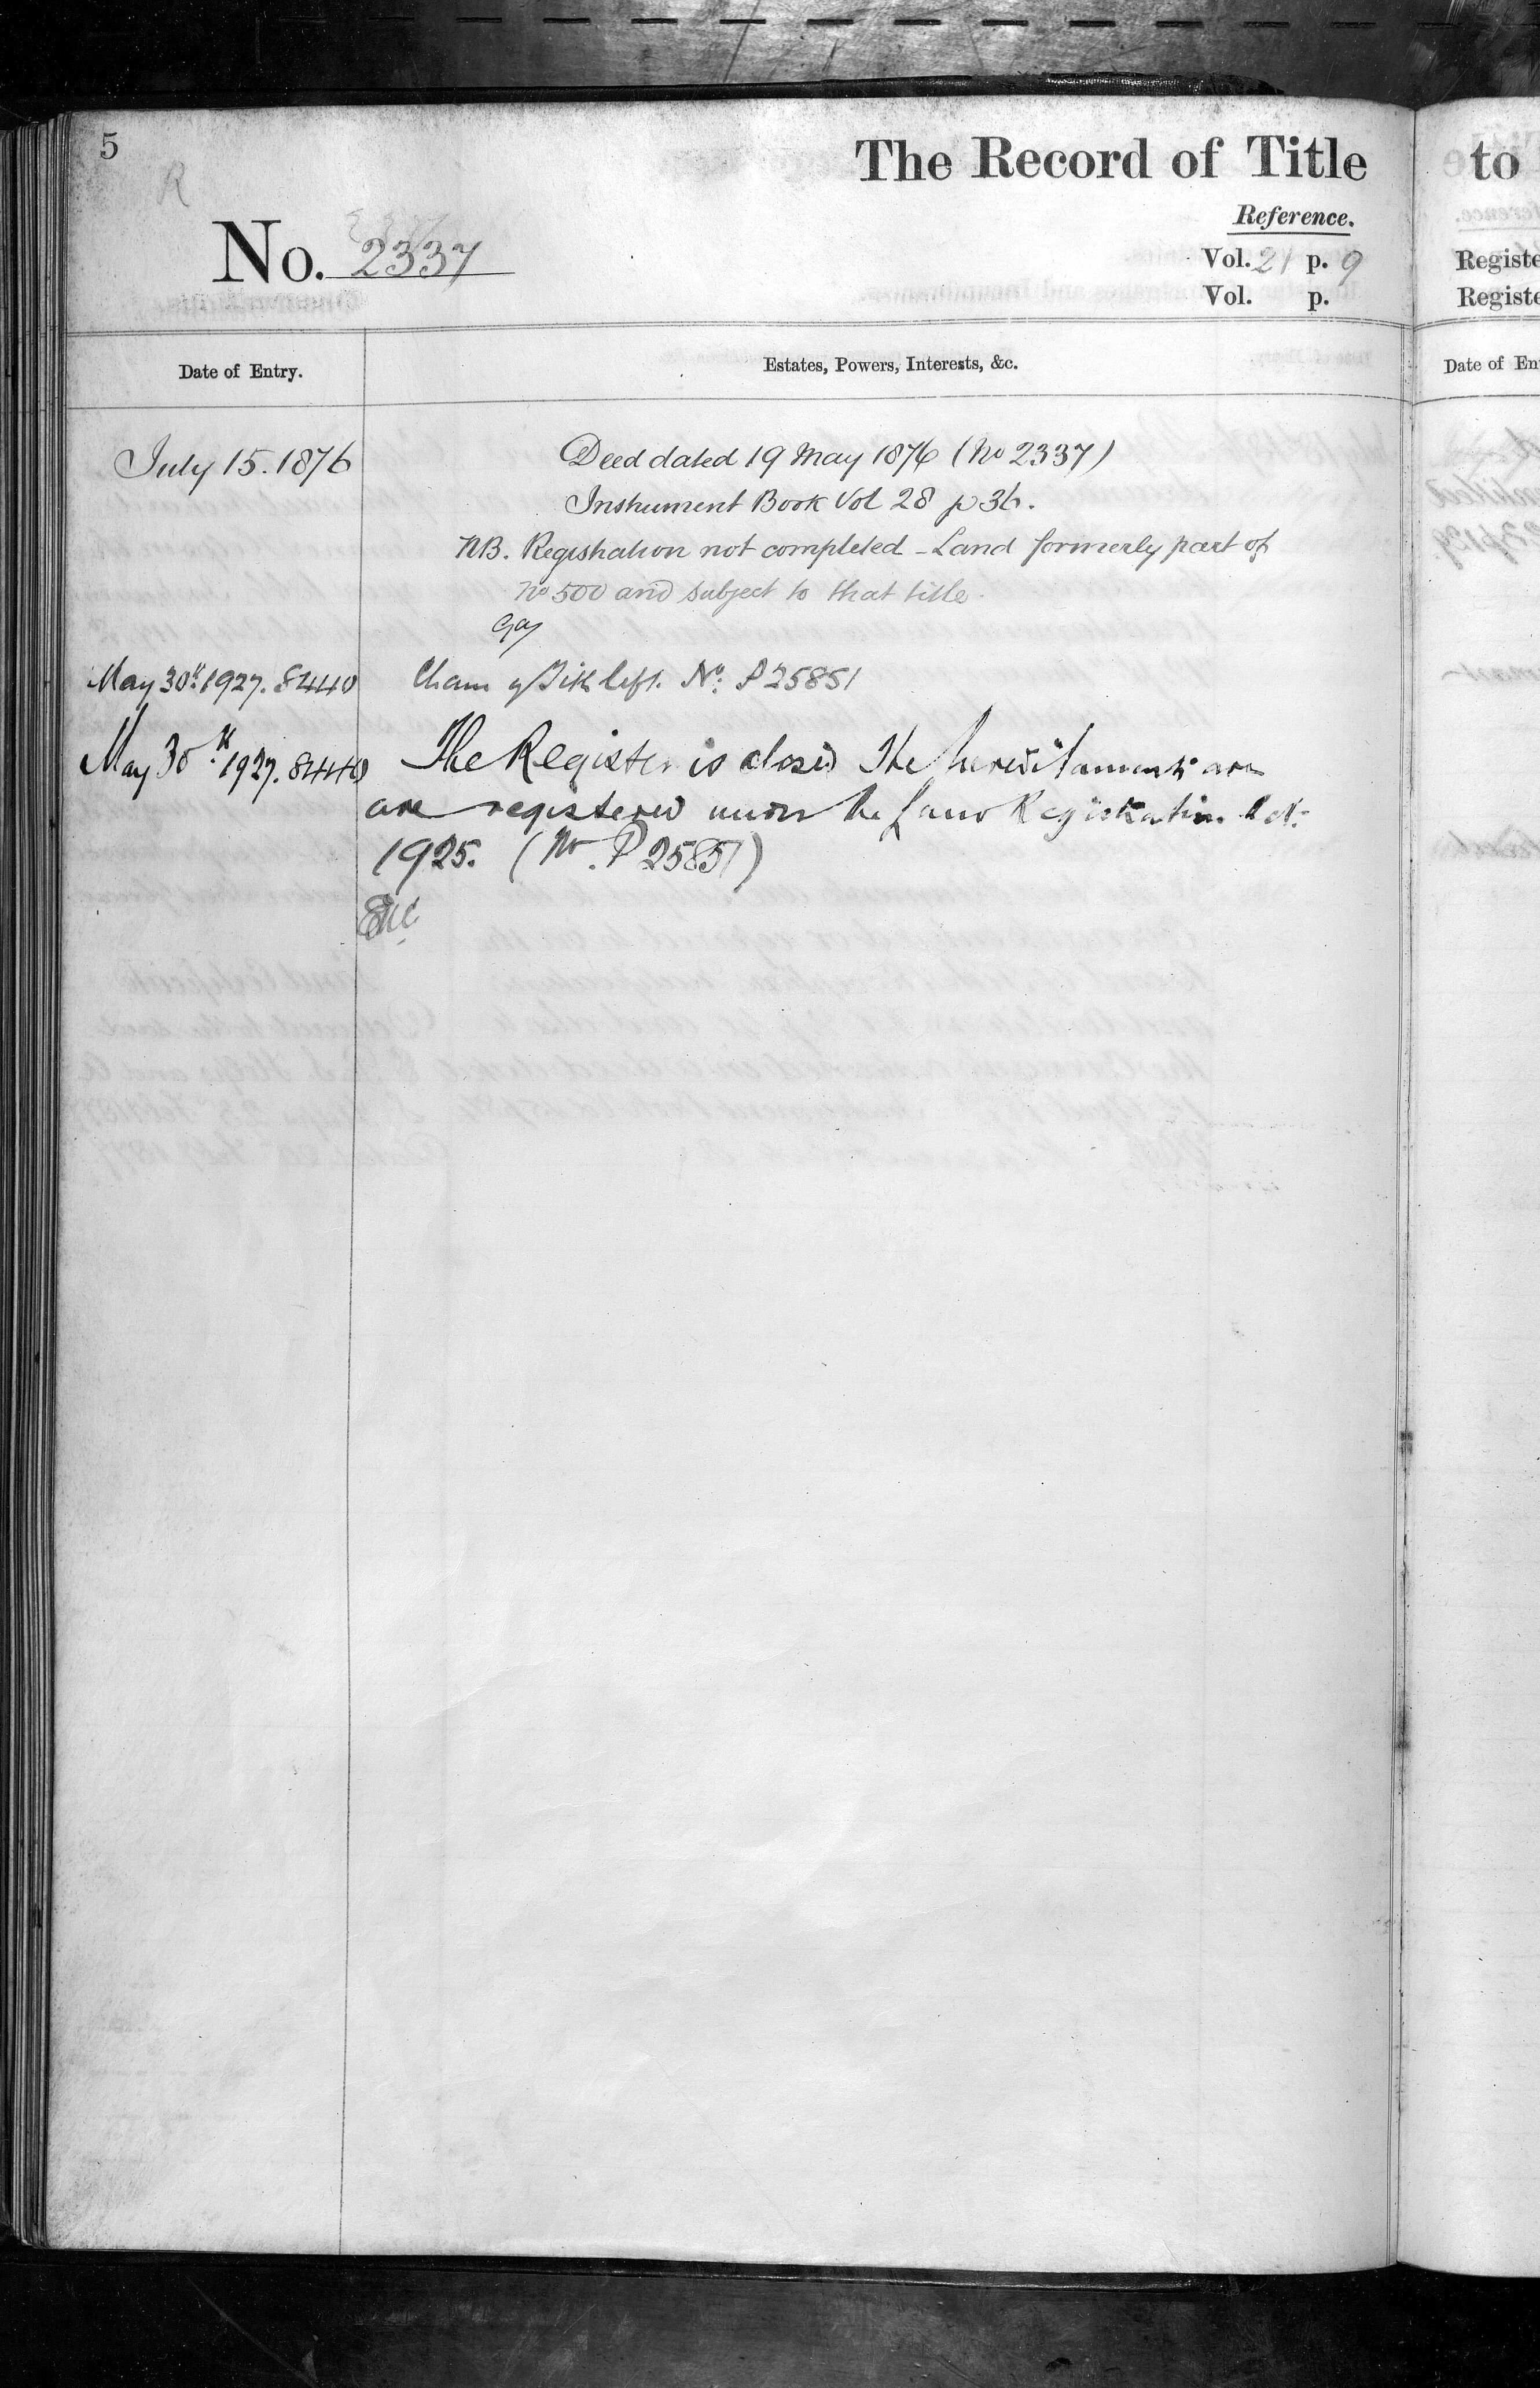 5
The Record of Title
to
R
Reference.
No. 2337
Vol. 21 p. 9
Registe
Vol. p.
Registe
Date of Entry.
Estates, Powers, Interests, &c.
Date of En
July 15. 1876
Deed dated 19 May 1876 (No 2337)
Instrument Book Vol 28 p 36.
NB. Registration not completed - Land formerly part of
No 500 and subject to that title.
May 30th 1927. 8440
No. P25851
May 30th 1927. 8440
The Register is closed The hereditaments are
are registered under the Land Registration Act
1925. (No. P25851)